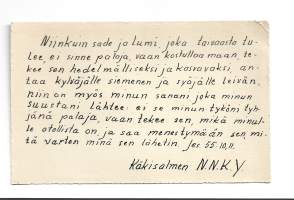 Niinkuin sade ja lumi, joka taivaasta tu-
lee, ei sinne palaja, vaan kostuttaa maan, te-
kee sen hedelmälliseksi ja kasvavaksi, an-
taa kylväjälle siemenen ja syöjälle leivän,
niin on myös minun sanani joka minun
suustani lähtee: ei se minun tyköni tyh-
jänä palaja, vaan tekee sen, mikä minul-
le otollista on, ja saa menestymään sen, mi-
tä varten minä sen lähetin. Jes. 55:10,11.
Käkisalmen N.N.K.Y